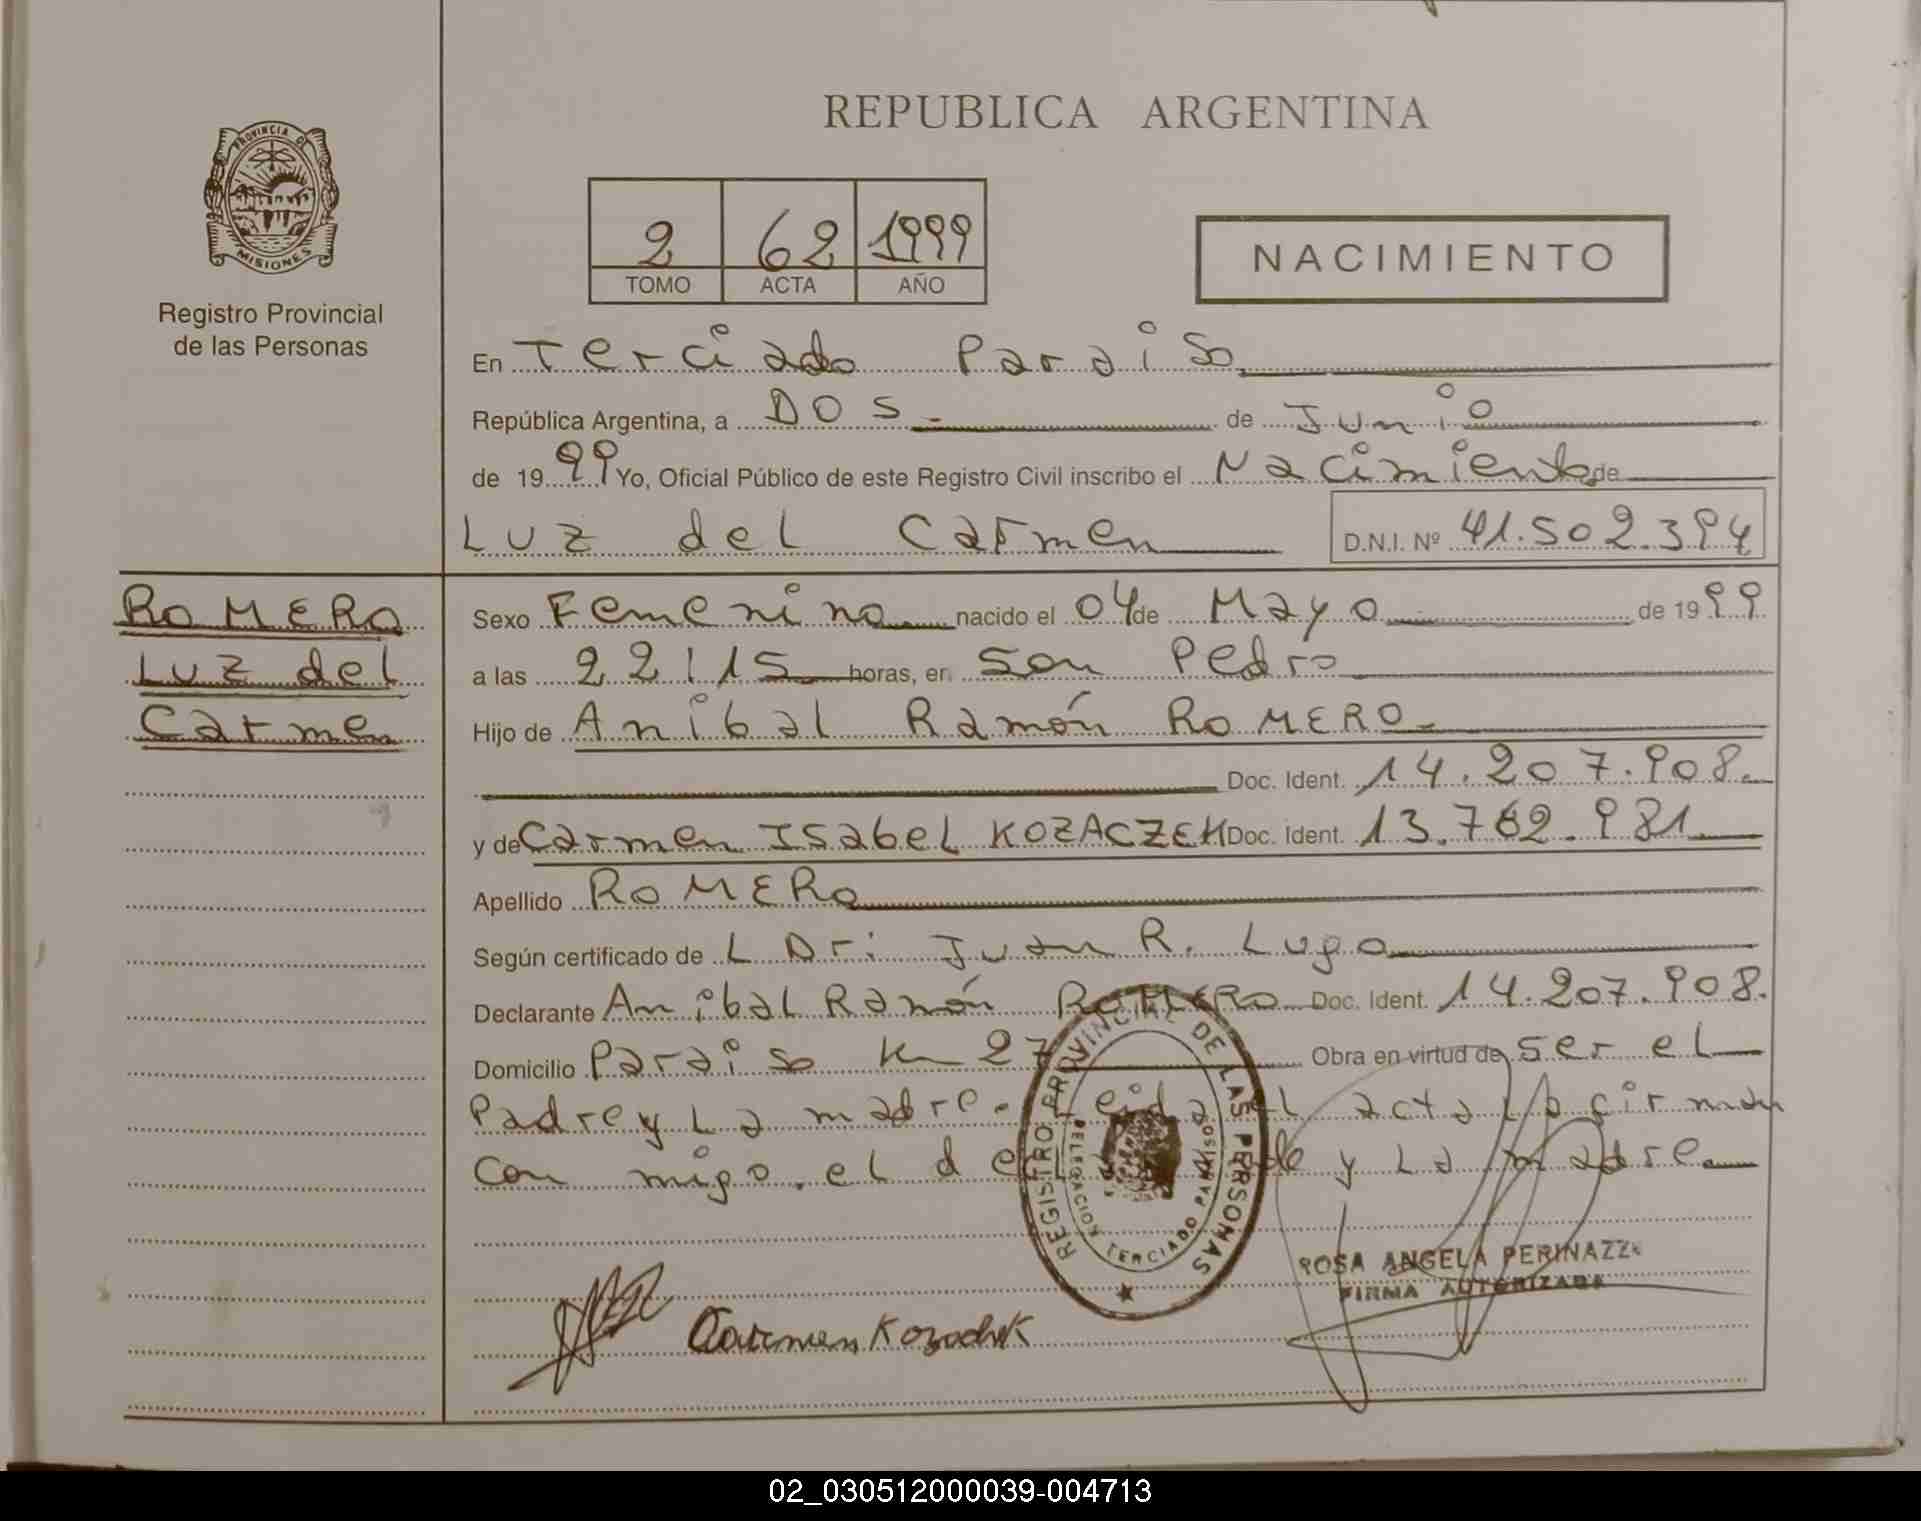 REPUBLICA ARGENTINA
PROVINCIA DE
MISIONES
Registro Provincial
de las Personas
2 62 1999
TOMO ACTA AÑO
NACIMIENTO
En Terciado Paraiso
República Argentina, a DOS.- de Junio
de 1999 Yo, Oficial Público de este Registro Civil inscribo el Nacimiento de
Luz del Carmen D.N.I. Nº 41.502.394
ROMERO
Luz del
Carmen
Sexo Femenino nacido el 04 de Mayo de 1999
a las 22:15 horas, en San Pedro
Hijo de Anibal Ramón ROMERO.-
Doc. Ident. 14.207.908.-
y de Carmen Isabel KOZACZEK Doc. Ident. 13.762.981
Apellido ROMERO
Según certificado de L Dr: Juan R. Lugo
Declarante Anibal Ramón ROMERO Doc. Ident. 14.207.908.
Domicilio Paraiso Km 27 Obra en virtud de ser el
Padre y La madre. Leida el acta La firman
con migo. el y La madre
REGISTRO PROVINCIAL DE LAS PERSONAS
DELEGACION TERCIADO PARAISO
ROSA ANGELA PERINAZZI
FIRMA AUTORIZADA
Carmen Kozaczek
02_030512000039-004713